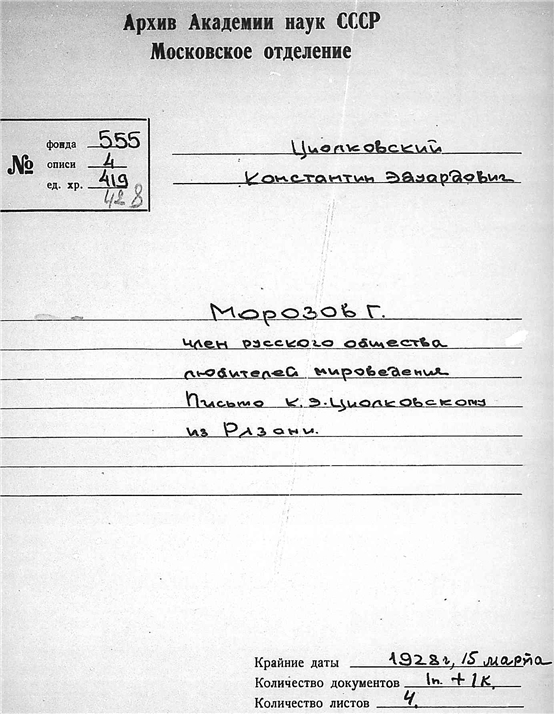 Архив Академии наук СССР
Московское отделение
№
фонда 555
описи 4
ед. хр. 419
428
Циолковский
Константин Эдуардович
Морозов Г.
член русского общества
любителей мироведения
Письмо К.Э.Циолковскому
из Рязани.
Крайние даты 1928г, 15 марта
Количество документов 1п. + 1к.
Количество листов 4.